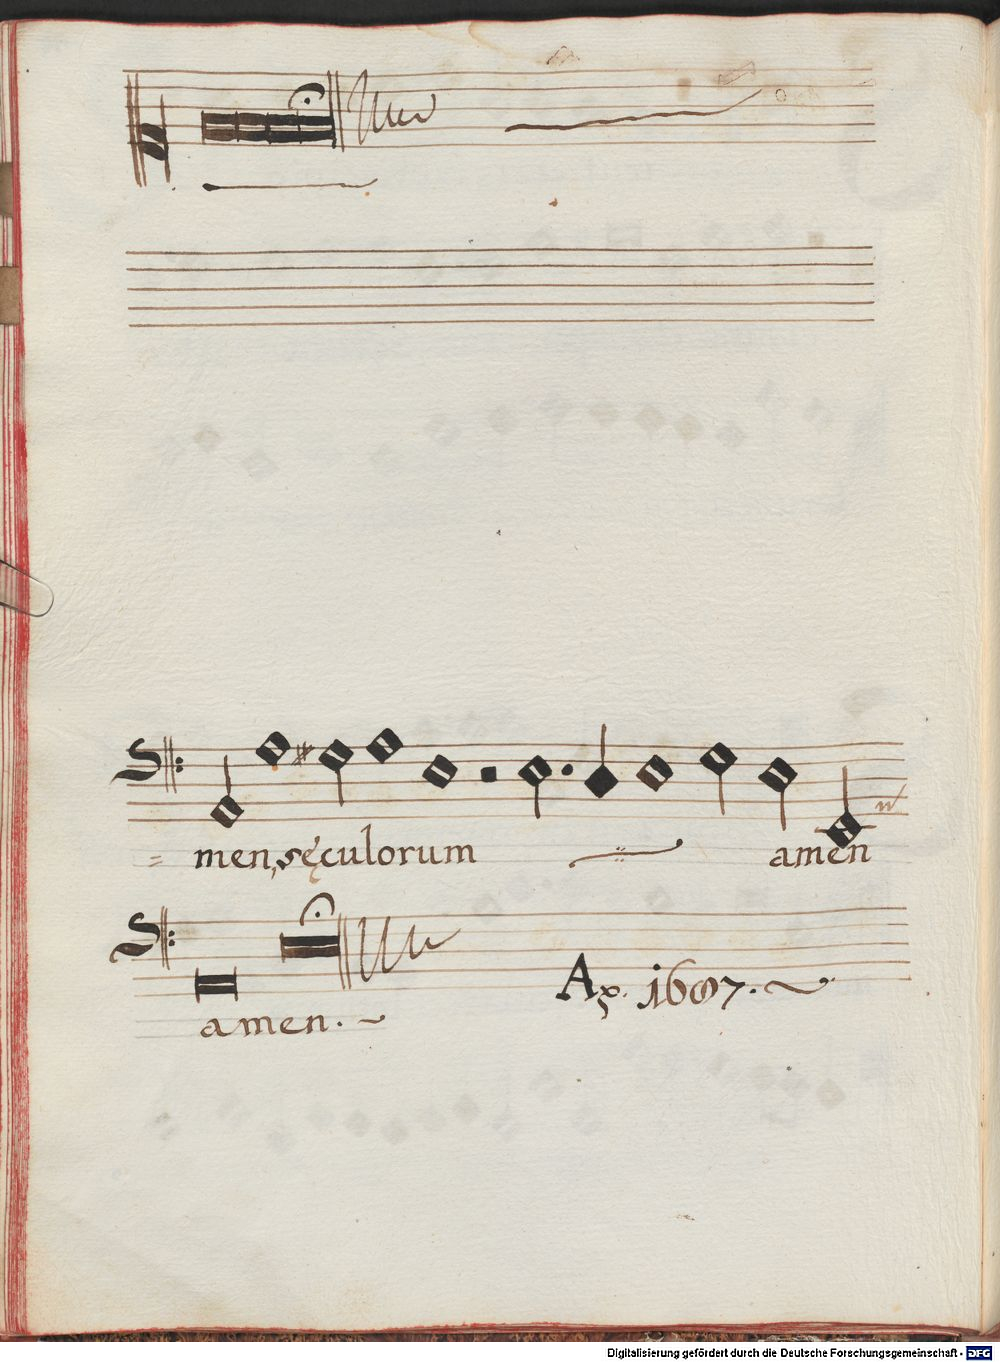 = men, sęculorum amen
amen. ~
Aº. 1607. ~
Digitalisierung gefördert durch die Deutsche Forschungsgemeinschaft - DFG